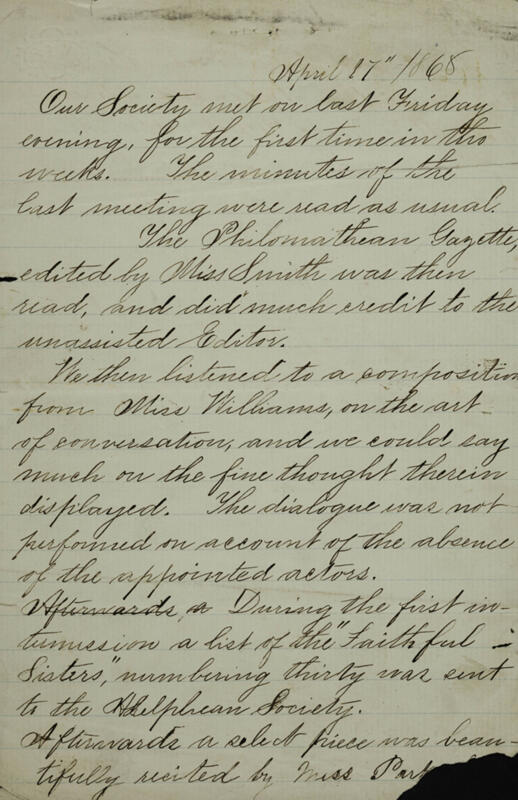 April 17" 1868
Our Society met on last Friday
evening, for the first time in two
weeks. The minutes of the
last meeting were read as usual.
The Philomathean Gazette,
edited by Miss Smith was then
read, and did much credit to the
unassisted Editor.
We then listened to a composition
from Miss Williams, on the art
of conversation, and we could say
much on the fine thought therein
displayed. The dialogue was not
performed on account of the absence
of the appointed actors.
Afterwards, a During the first in-
termission a list of the "Faithful
Sisters," numbering thirty was sent
to the Adelphean Society.
Afterwards a select piece was beau-
tifully recited by Miss